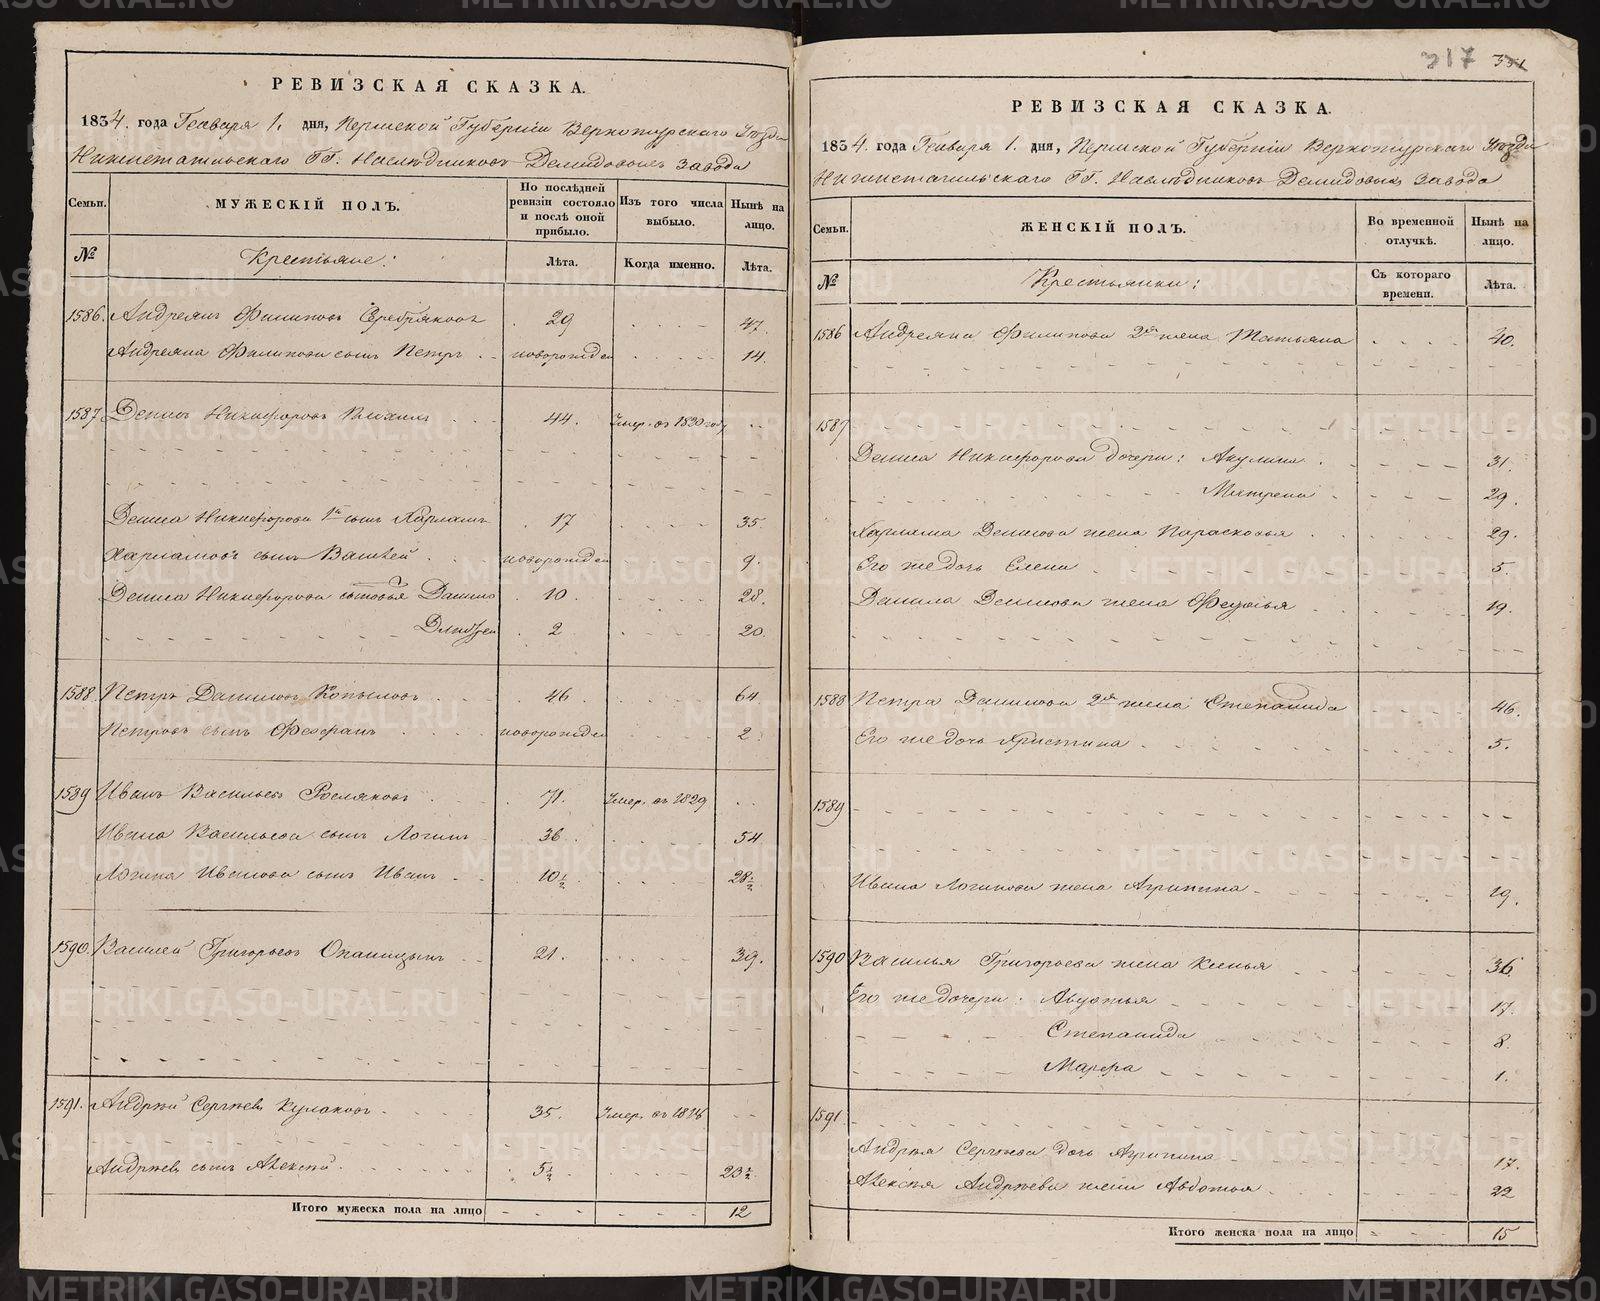 РЕВИЗСКАЯ СКАЗКА.
1834. года Генваря 1. дня, Пермской Губернiи Верхотурскаго Уѣзда
Нижнетагильскаго ГГ. Наслѣдниковъ Демидовыхъ завода
Семьи. МУЖЕСКIЙ ПОЛЪ. По послѣдней ревизiи состояло и послѣ оной прибыло. Изъ того числа выбыло. Нынѣ на лицо.
№ Крестьяне: Лѣта. Когда именно. Лѣта.
1586. Андреянъ Филиповъ Серебряковъ 29 47.
Андреяна Филипова сынъ Петръ новорожден 14.
1587 Денисъ Никифоровъ 44. Умер. въ 1830 году
Дениса Никифорова 1й сынъ Харламъ 17 35.
Харламовъ сынъ Василей новорожден 9.
Дениса Никифорова сыновья Данило 10 28.
Андрей 2 20.
1588. Петръ Даниловъ Копыловъ 46 64.
Петровъ сынъ Феофанъ новорожден 2
1589 Иванъ Васильевъ Росляковъ 71. Умер. въ 1829
Ивана Васильева сынъ Логинъ 36 54
Логина Иванова сынъ Иванъ 10½ 28½
1590. Василей Григорьевъ Опаницынъ 21. 39.
1591. Андрей Сергѣевъ Кулаковъ 35. Умер. въ 1826
Андрѣевъ сынъ Алексѣй 5½ 23½
Итого мужеска пола на лицо 12
317 331
РЕВИЗСКАЯ СКАЗКА.
1834. года Генваря 1. дня, Пермской Губернiи Верхотурскаго Уѣзда
Нижнетагильскаго ГГ. Наслѣдниковъ Демидовыхъ завода
Семьи. ЖЕНСКIЙ ПОЛЪ. Во временной отлучкѣ. Нынѣ на лицо.
№ Крестьянки: Съ котораго времени. Лѣта.
1586 Андреяна Филипова 2я жена Татьяна 40.
1587
Дениса Никифорова дочери: Акулина 31
Матрена 29.
Харлама Денисова жена Парасковья 29.
Его же дочь Елена 5.
Данила Денисова жена Федосья 19.
1588 Петра Данилова 2я жена Степанида 46.
Его же дочь Христина 5.
1589
Ивана Логинова жена Агрипина 19.
1590 Василья Григорьева жена Ксенья 36
Его же дочери: Авдотья 17.
Степанида 8.
Марфа 1.
1591.
Андрея Сергѣева дочь Агрипина 17.
Алексѣя Андрѣева жена Авдотья 22
Итого женска пола на лицо 15
METRIKI.GASO-URAL.RU